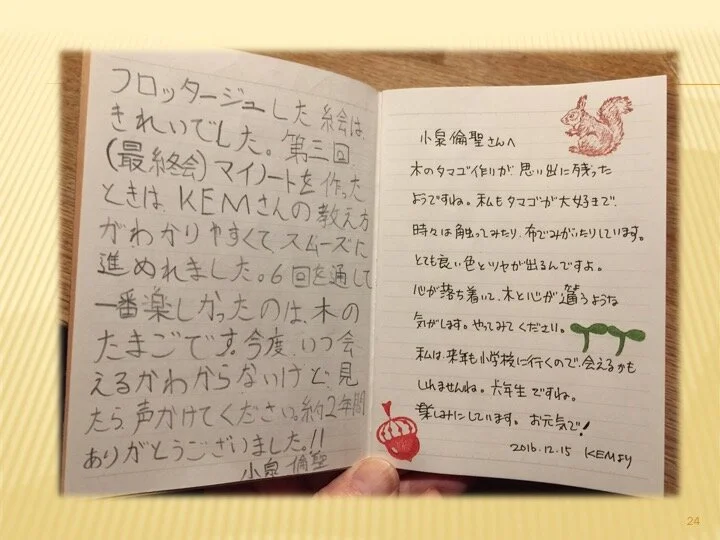 フロッタージュした絵は、
きれいでした。第三回
(最終会)マイノートを作った
ときは、KEMさんの教え方
がわかりやすくて、スムーズに
進めれました。6回を通して
一番楽しかったのは、木の
たまごです。今度いつ会
えるかわからないけど、見
たら声かけてください。約2年間
ありがとうございました!!
小泉 倫聖
小泉倫聖さんへ
木のタマゴ作りが、思い出に残った
ようですね。私もタマゴが大好きで、
時々は触ってみたり、布でみがいたりしています。
とても良い色とツヤが出るんですよ。
心が落ち着いて、木と心が通うような
気がします。やってみてください。
私は、来年も小学校に行くので、会えるかも
しれませんね。六年生ですね。
楽しみにしています。お元気で!
2016.12.15 KEMより
24